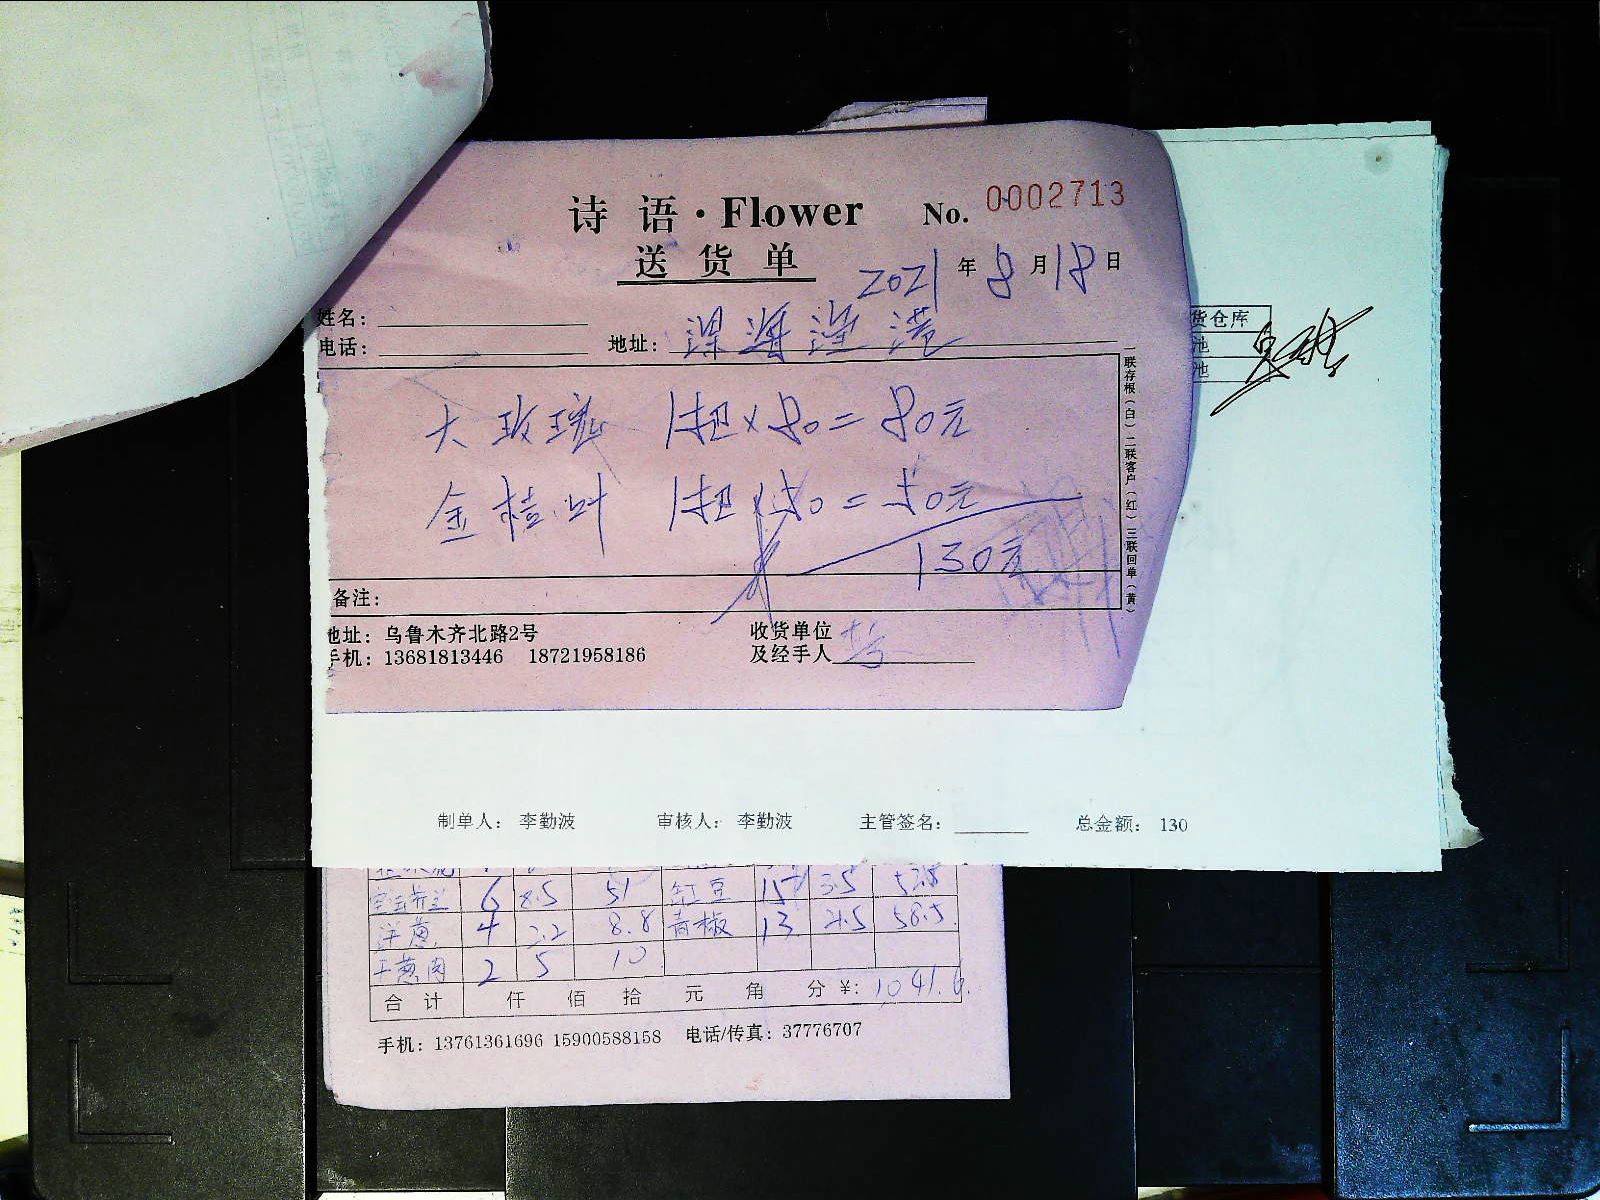 诗语·Flower No. 0002713
送货单
2021年8月18日
姓名：
电话： 地址：深海渔港
货仓库
池
池
大玫瑰 1扎×80=80元
金桂叶 1扎×50=50元
130元
备注：
一联存根（白）二联客户（红）三联回单（黄）
地址：乌鲁木齐北路2号 收货单位
手机：13681813446 18721958186 及经手人
制单人： 李勤波 审核人： 李勤波 主管签名： 总金额： 130
6 8.5 51 红豆 15 3.5 52.5
洋葱 4 2.2 8.8 青椒 13 4.5 58.5
2 5 10
合计 仟 佰 拾 元 角 分 ¥：1041.6
手机：13761361696 15900588158 电话/传真：37776707